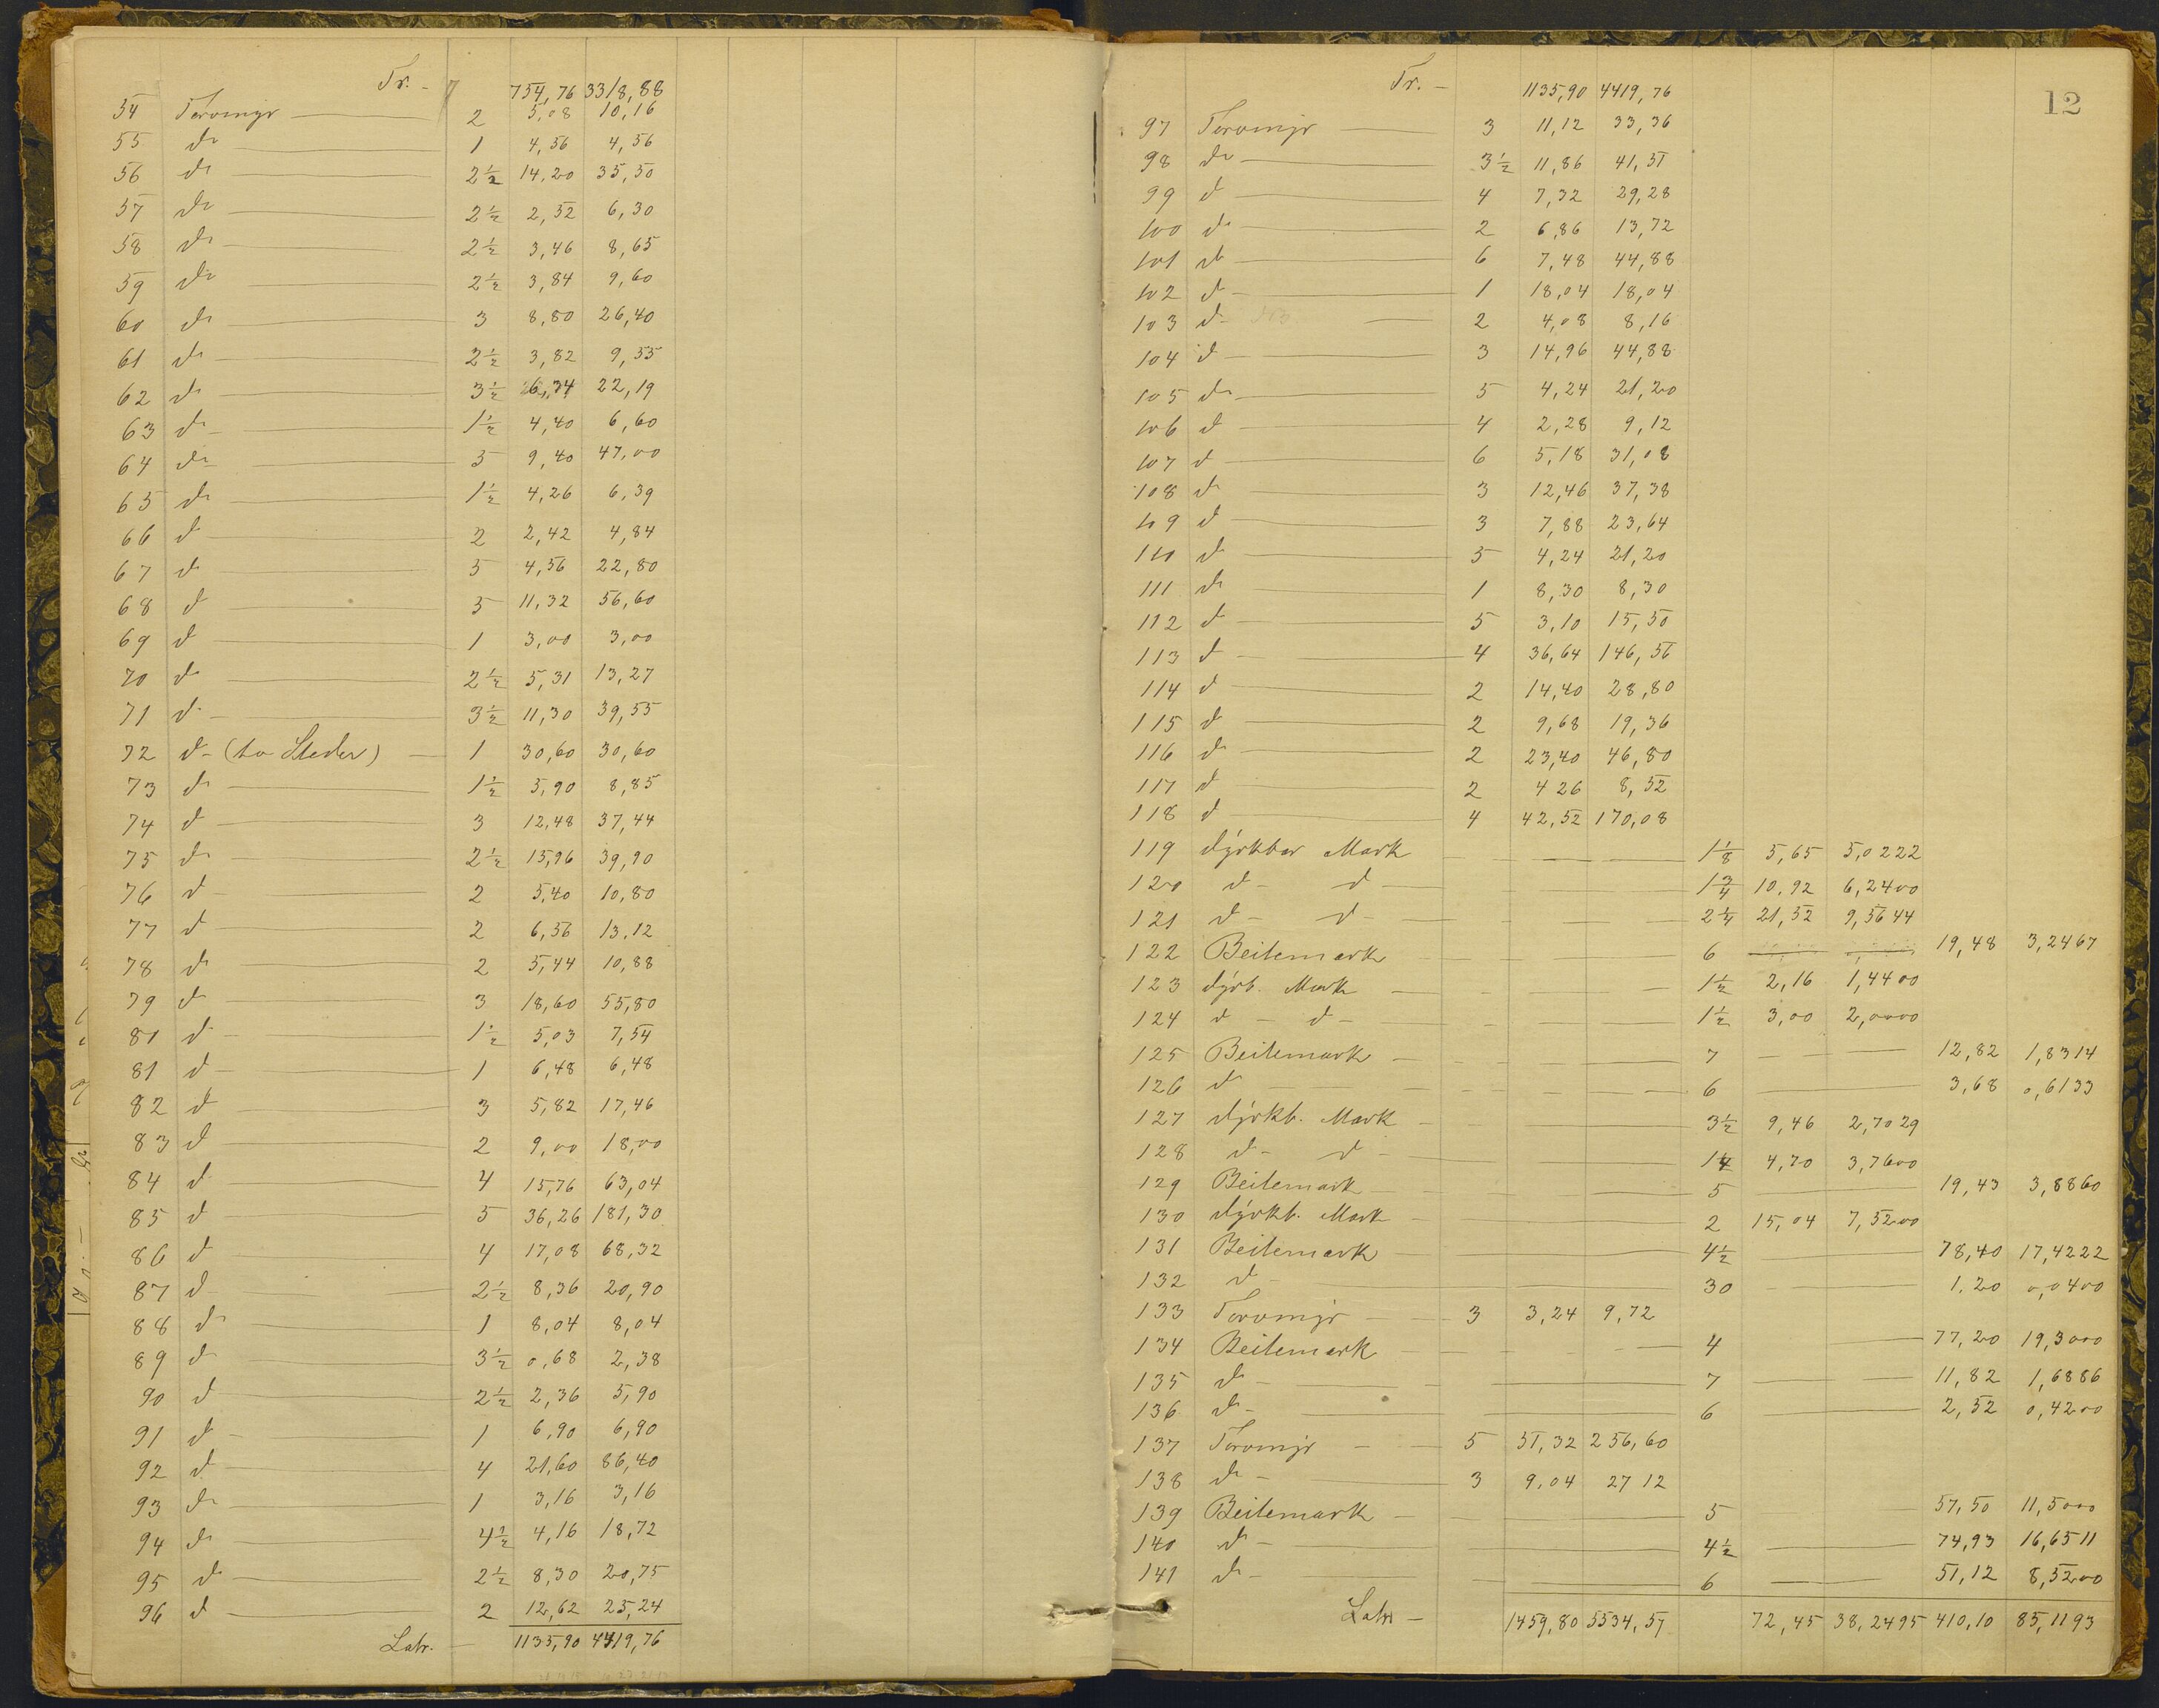 Tr. - 754,76 3318,88
54 Torvmyr 2 5,08 10,16
55 do 1 4,56 4,56
56 do 2½ 14,20 35,50
57 do 2½ 2,52 6,30
58 do 2½ 3,46 8,65
59 do 2½ 3,84 9,60
60 do 3 8,80 26,40
61 do 2½ 3,82 9,55
62 do 3½ 6,34 22,19
63 do 1½ 4,40 6,60
64 do 5 9,40 47,00
65 do 1½ 4,26 6,39
66 do 2 2,42 4,84
67 do 5 4,56 22,80
68 do 5 11,32 56,60
69 do 1 3,00 3,00
70 do 2½ 5,31 13,27
71 do 3½ 11,30 39,55
72 do (to Steder) 1 30,60 30,60
73 do 1½ 5,90 8,85
74 do 3 12,48 37,44
75 do 2½ 15,96 39,90
76 do 2 5,40 10,80
77 do 2 6,56 13,12
78 do 2 5,44 10,88
79 do 3 18,60 55,80
81 do 1½ 5,03 7,54
81 do 1 6,48 6,48
82 do 3 5,82 17,46
83 do 2 9,00 18,00
84 do 4 15,76 63,04
85 do 5 36,26 181,30
86 do 4 17,08 68,32
87 do 2½ 8,36 20,90
88 do 1 8,04 8,04
89 do 3½ 0,68 2,38
90 do 2½ 2,36 5,90
91 do 1 6,90 6,90
92 do 4 21,60 86,40
93 do 1 3,16 3,16
94 do 4½ 4,16 18,72
95 do 2½ 8,30 20,75
96 do 2 12,62 25,24
Latr. - 1135,90 4419,76
12
Tr. - 1135,90 4419,76
97 Torvmyr 3 11,12 33,36
98 do 3½ 11,86 41,51
99 do 4 7,32 29,28
100 do 2 6,86 13,72
101 do 6 7,48 44,88
102 do 1 18,04 18,04
103 do 2 4,08 8,16
104 do 3 14,96 44,88
105 do 5 4,24 21,20
106 do 4 2,28 9,12
107 do 6 5,18 31,08
108 do 3 12,46 37,38
109 do 3 7,88 23,64
110 do 5 4,24 21,20
111 do 1 8,30 8,30
112 do 5 3,10 15,50
113 do 4 36,64 146,56
114 do 2 14,40 28,80
115 do 2 9,68 19,36
116 do 2 23,40 46,80
117 do 2 4 26 8,52
118 do 4 42,52 170,08
119 dyrkbar Mark 1⅛ 5,65 5,0222
120 do do 1¾ 10,92 6,2400
121 do do 2¼ 21,52 9,5644
122 Beitemark 6 19,48 3,2467
123 dyrb. Mark 1½ 2,16 1,4400
124 do do 1½ 3,00 2,0000
125 Beitemark 7 12,82 1,8314
126 do 6 3,68 0,6133
127 dyrkb. Mark 3½ 9,46 2,7029
128 do do 1¼ 4,70 3,7600
129 Beitemark 5 19,43 3,8860
130 dyrkb. Mark 2 15,04 7,5200
131 Beitemark 4½ 78,40 17,4222
132 do 30 1,20 0,0400
133 Torvmyr 3 3,24 9,72
134 Beitemark 4 77,20 19,3000
135 do 7 11,82 1,6886
136 do 6 2,52 0,4200
137 Torvmyr 5 51,32 256,60
138 do 3 9,04 27 12
139 Beitemark 5 57,50 11,5000
140 do 4½ 74,93 16,6511
141 do 6 51,12 8,5200
Latr - 1459,80 5534,57 72,45 38,2495 410,10 85,1193